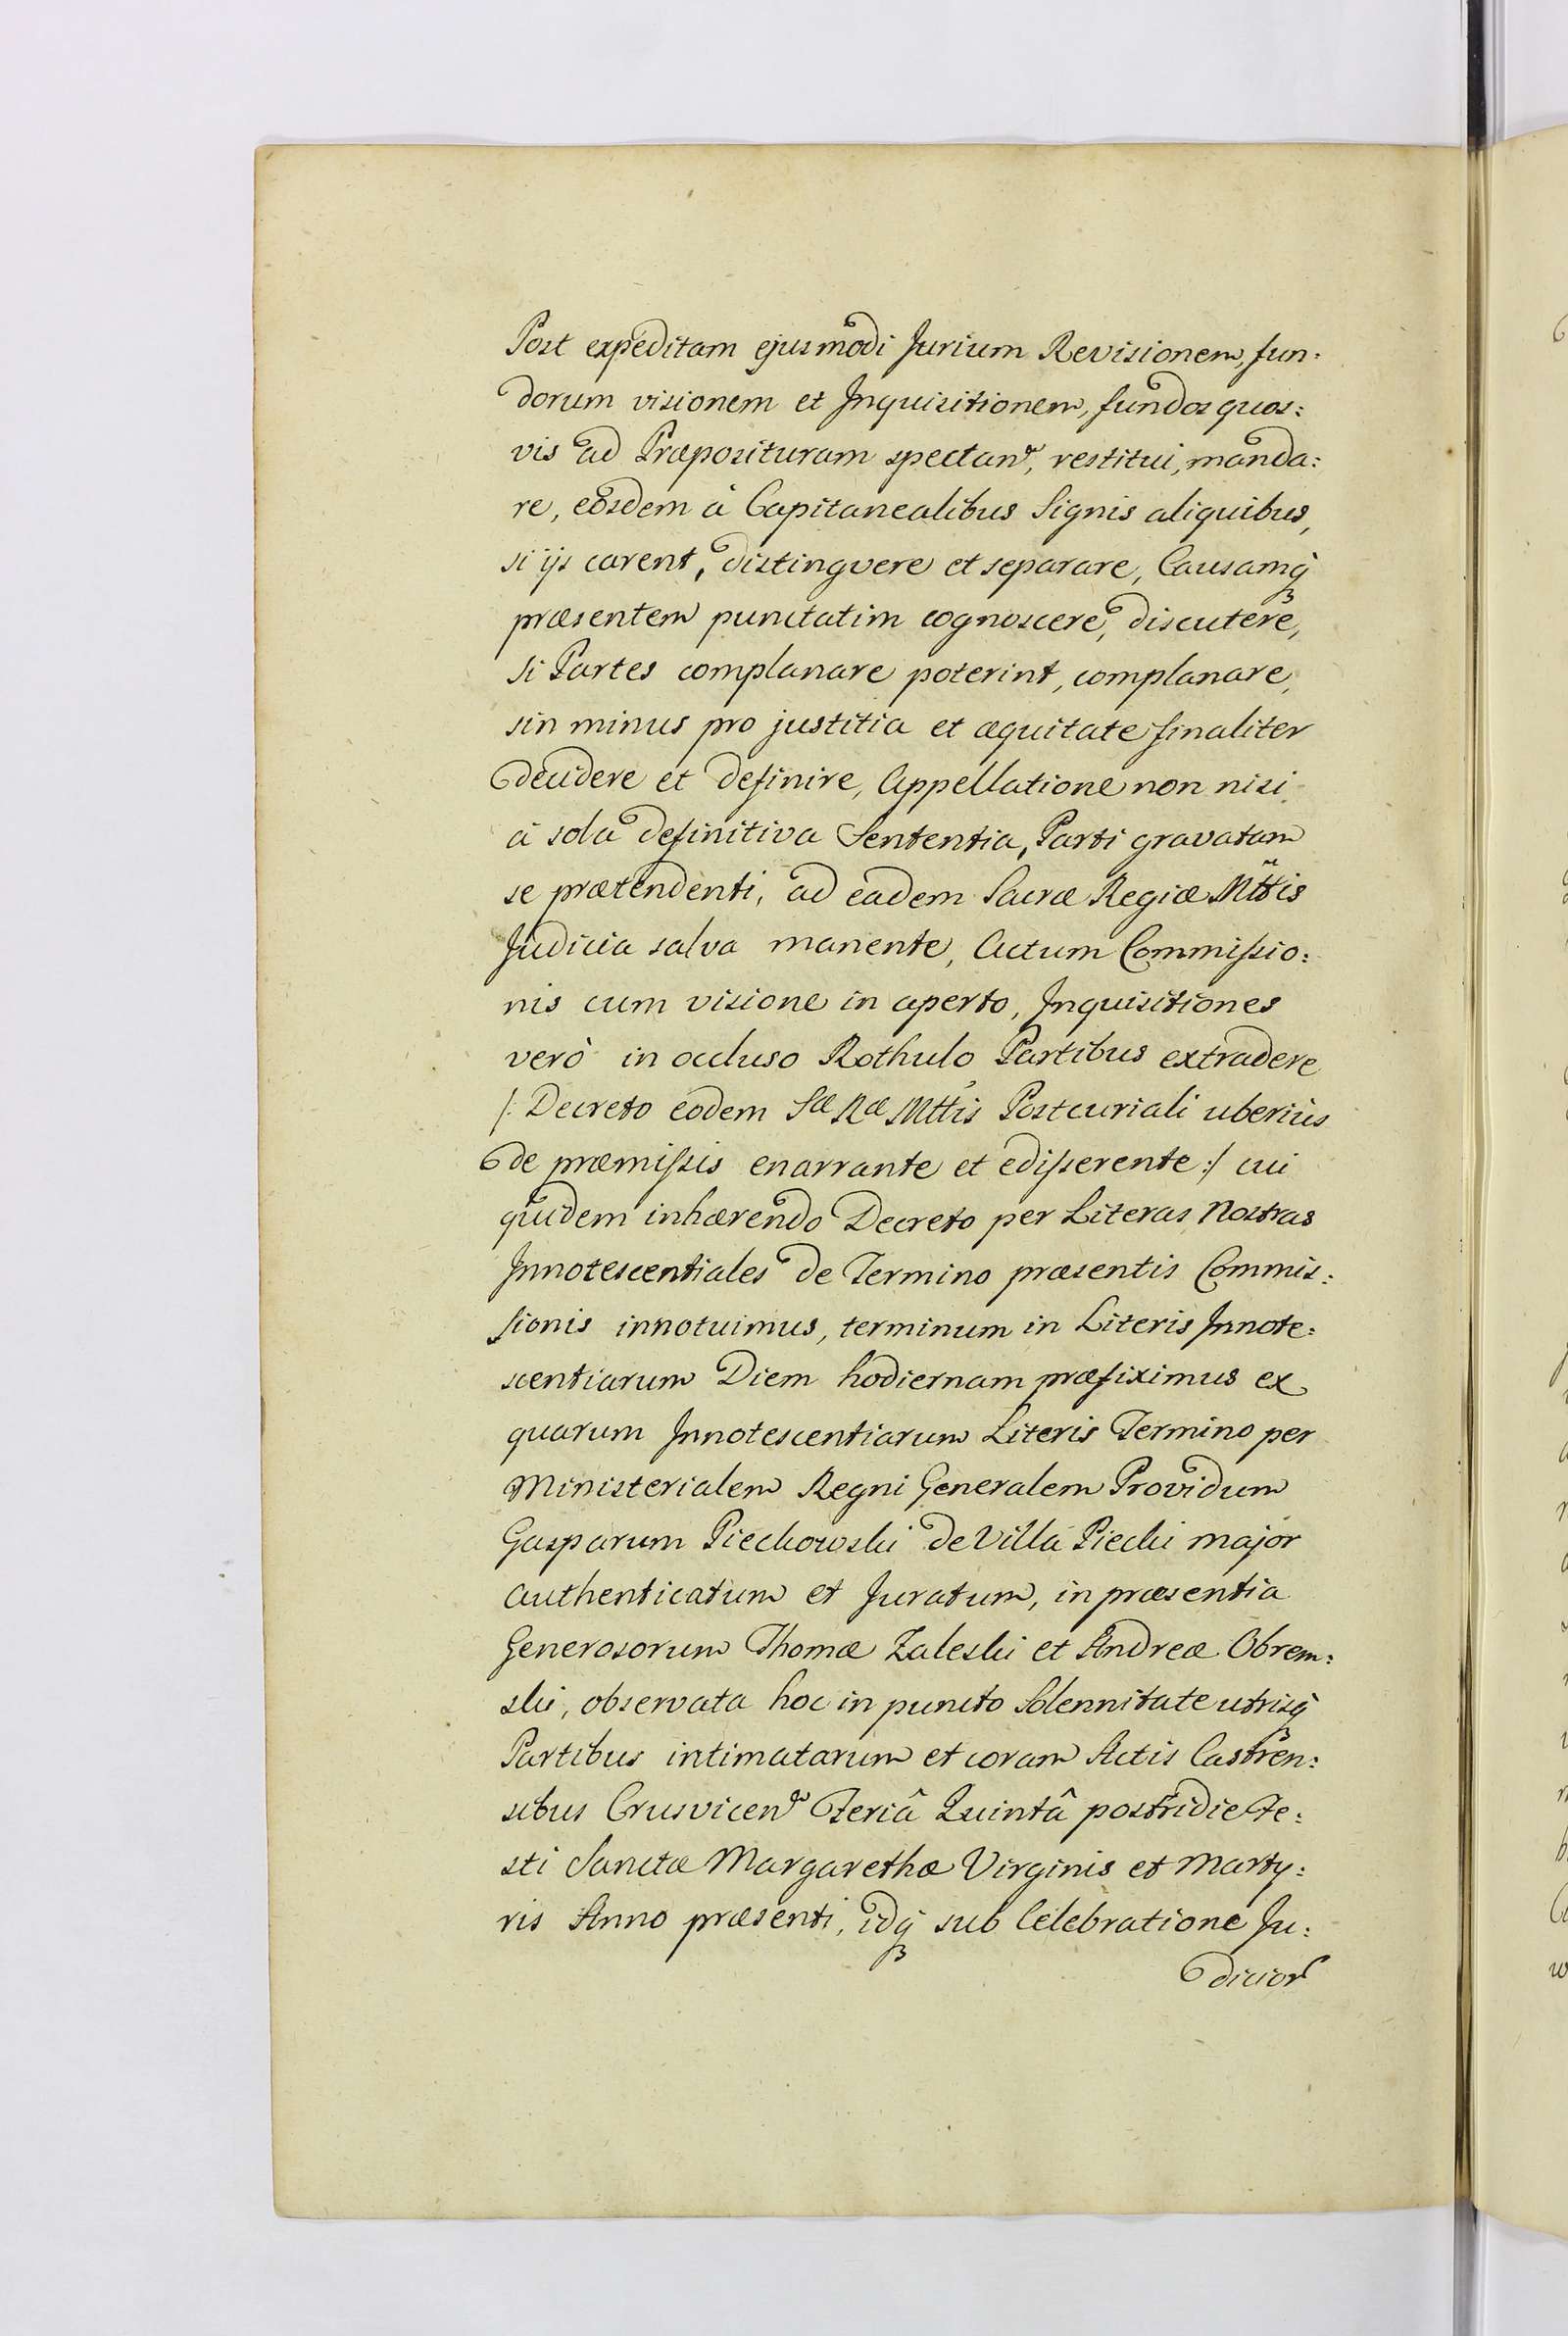 Post expeditam ejusmodi Jurium Revisionem, fun:
dorum visionem et Inquisitionem, fundos quos:
vis ad Præposituram spectan, restitui, manda:
re, eosdem à Capitanealibus Signis aliquibus,
si ijs carent, distingvere et separare, Causamq̀ꝫ
præsentem punctatim cognoscere, discutere,
si Partes complanare poterint, complanare,
sin minus pro justitia et æquitate finaliter
decidere et definire, Appellatione non nisi
à sola definitiva Sententia, Parti gravatam
se prætendenti, ad eadem Sacræ Regiæ Mttis
Judicia salva manente, Actum Commiſsio:
nis cum visione in aperto, Inquisitiones
verò in occluso Rothulo Partibus extradere
/: Decreto eodem Sæ Ræ Mttis Postcuriali uberiùs
de præmiſsis enarrante et ediſserente :/ cui
quidem inhærendo Decreto per Literas Nostras
Innotescentiales de Termino præsentis Commis:
sionis innotuimus, terminum in Literis Innote:
scentiarum Diem hodiernam præfiximus ex
quarum Innotescentiarum Literis Termino per
Ministerialem Regni Generalem Providum
Gasparum Piechowski de Villa Piecki major
authenticatum et Juratum, in præsentia
Generosorum Thomæ Zaleski et Andreæ Obrem:
ski, observata hoc in puncto Solennitate utrisq̀ꝫ
Partibus intimatarum et coram Actis Castren:
sibus Crusvicen Feriâ Quintâ postridie Fe:
sti Sanctæ Margarethæ Virginis et Marty:
ris Anno præsenti, idq̀ꝫ sub Celebratione Ju:
dicior